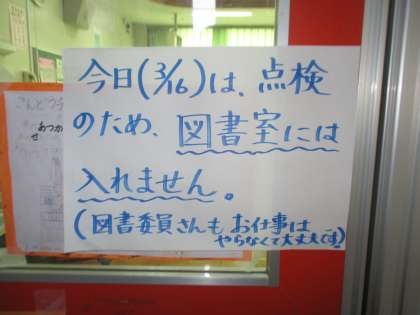 今日(3/16)は、点検
のため、図書室には
入れません。
(図書委員さんも お仕事は
やらなくて大丈夫です)